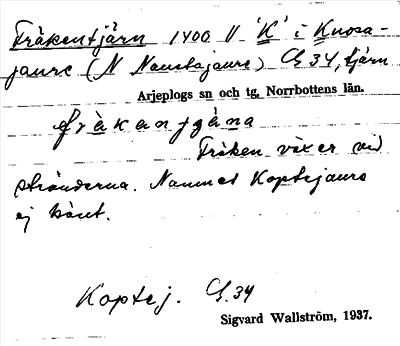 Fräkentjärn 1400 V 'K' i Knosa-
jaure (N Naustajaure) G 34, tjärn
Arjeplogs sn och tg, Norrbottens län.
fräkanjgäna
Fräken växer vid
stränderna. Namnet Koptejaure
ej känt.
Koptej. G. 34
Sigvard Wallström, 1937.